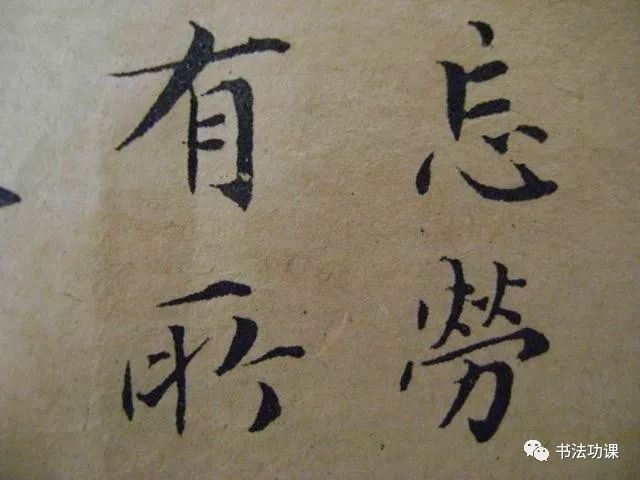 忘勞
有所
书法功课